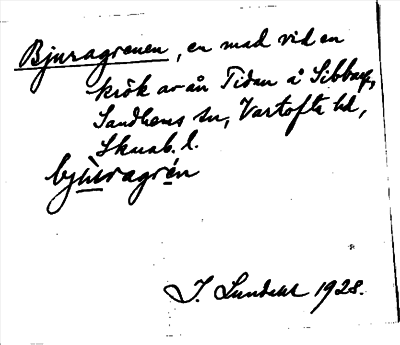 Bjuragrenen, en mad vid en
krök av ån Tidan å Sibbarp,
Sandhems sn, Vartofta hd,
Skarab. l.
bjùragrén
J. Lundahl 1928.